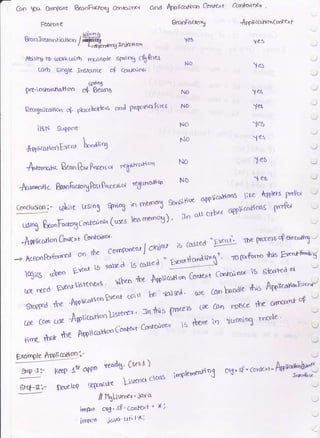 Can you Compare BeanFactory Container and Application Context Container.
Feature BeanFactory ApplicationContext
Wiring
BeanInstantiation / Dependency Injection Yes Yes
Ability to work with multiple spring cfg files
with single Instance of Container No Yes
pre-instantiation of spring Beans No Yes
Recognization of placeholders and properties files No Yes
I18N Support No Yes
ApplicationEvent handling No Yes
Automatic BeanPostProcessor registration No Yes
Automatic BeanFactoryPostProcessor registration No Yes
Conclusion:- while using Spring in memory Sensitive applications like Applets prefer
using BeanFactoryContainer (uses less memory). In all other applications prefer
-ApplicationContext Container.
→ Action Performed on the Component / Object is called "Event". The process of executing
logics when Event is raised is called "Event Handling". To perform this Event Handling
we need EventListeners. When the Application Context Container is started or
Stopped the Application Event will be raised. we Can handle this ApplicationEvent
we Can use ApplicationListener. In this process we can notice the amount of
time that the Application Context Container is there in running mode.
Example Application:-
Step-I:- Keep 1st appn ready. (Set I)
Step-II:- Develop separate Listener class implementing org.sf.context.ApplicationListener
Interface
// MyListener.java
import org.sf.context.*;
import java.util.*;